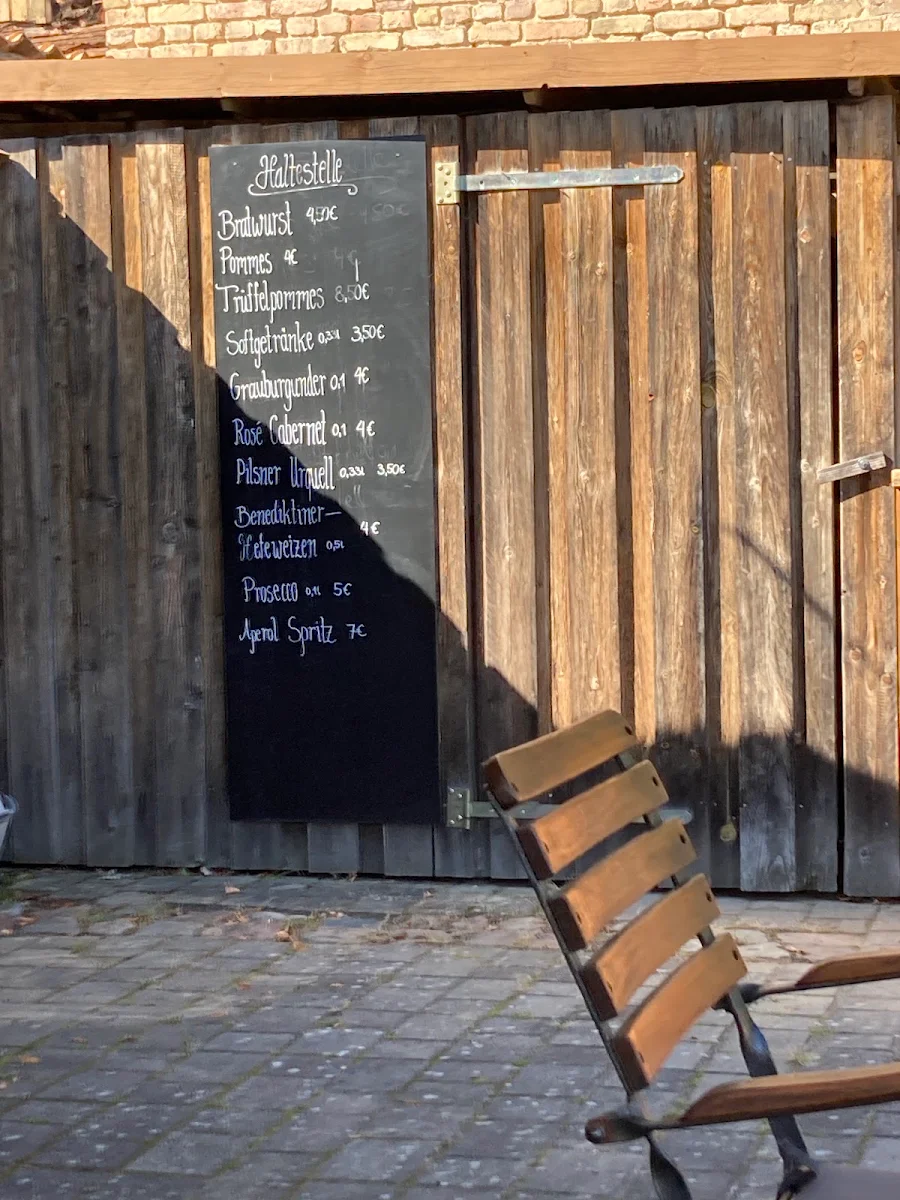 Haltestelle
Bratwurst 4,50€
Pommes 4€
Trüffelpommes 8,50€
Softgetränke 0,33l 3,50€
Grauburgunder 0,1 4€
Rosé Cabernet 0,1 4€
Pilsner Urquell 0,33l 3,50€
Benediktiner—
Hefeweizen 0,5l 4€
Prosecco 0,1l 5€
Aperol Spritz 7€